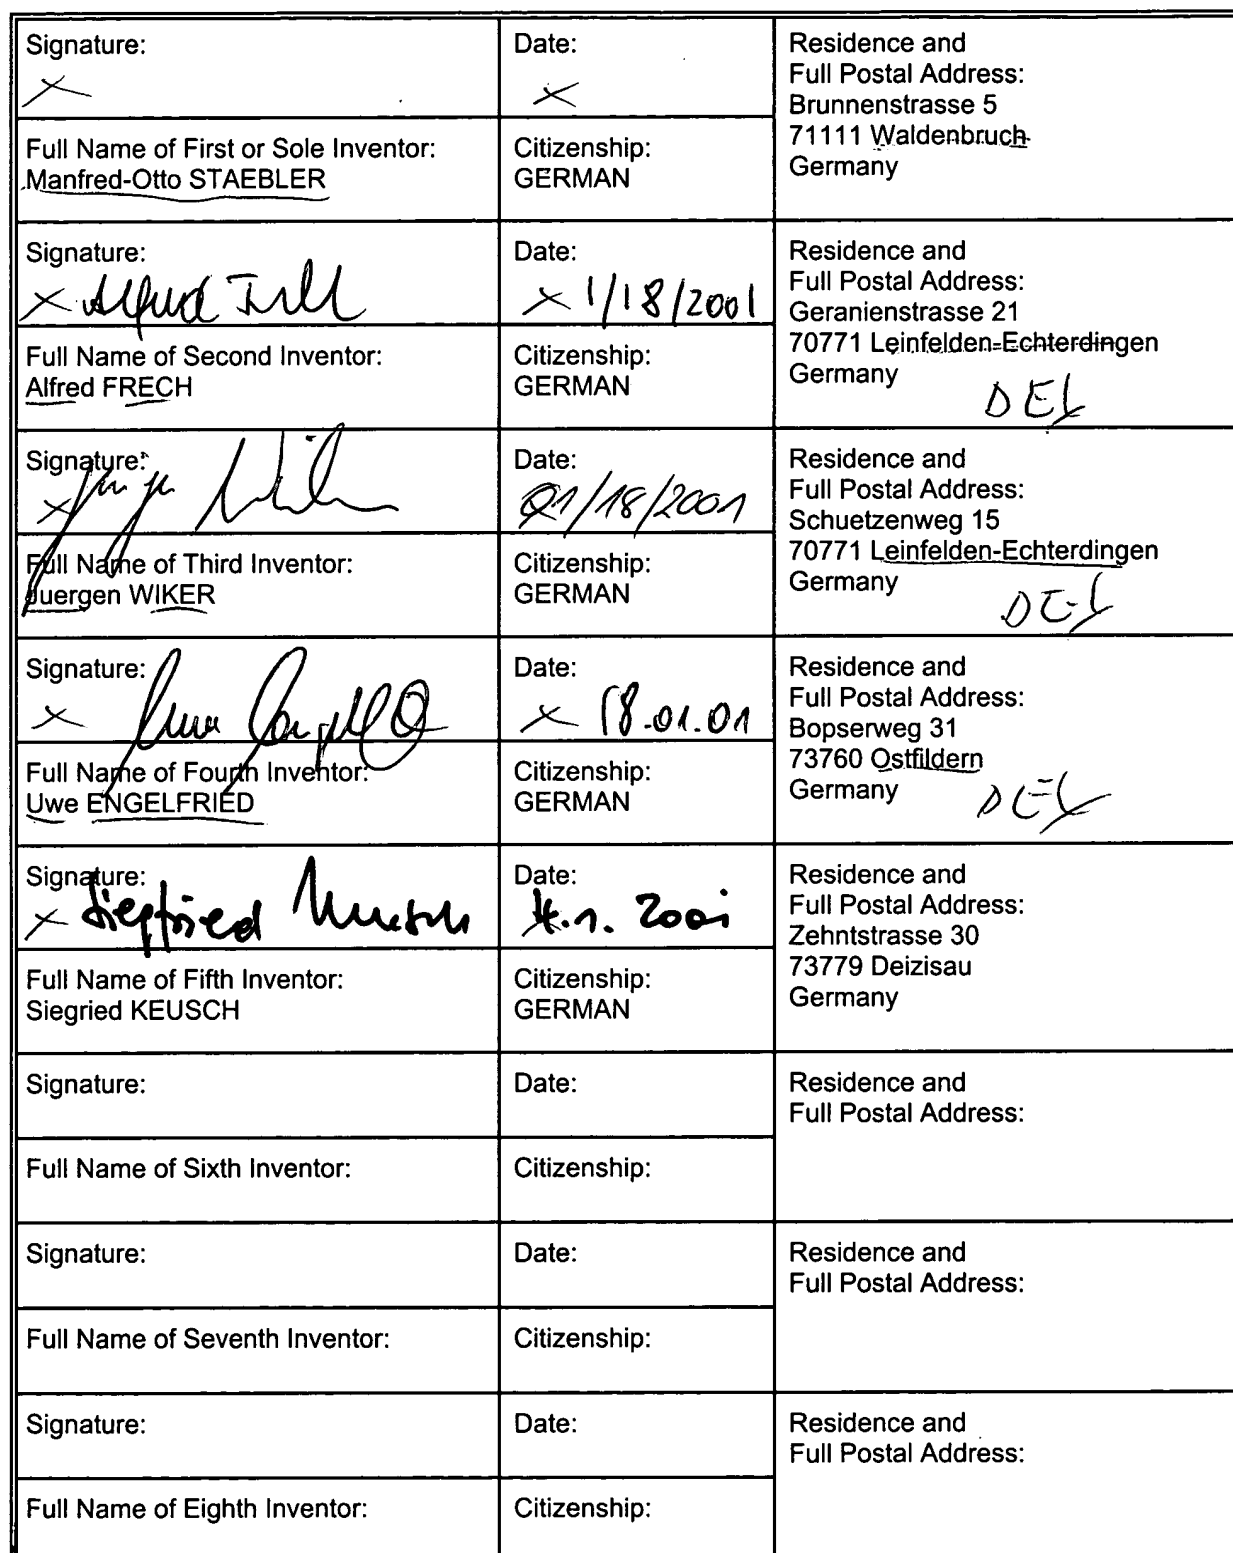 Signature:
X
Date:
X
Residence and
Full Postal Address:
Brunnenstrasse 5
71111 Waldenbruch
Germany
Full Name of First or Sole Inventor:
Manfred-Otto STAEBLER
Citizenship:
GERMAN
Signature:
X Alfred
Date:
X 1/18/2001
Residence and
Full Postal Address:
Geranienstrasse 21
70771 Leinfelden-Echterdingen
Germany
DEX
Full Name of Second Inventor:
Alfred FRECH
Citizenship:
GERMAN
Signature:
X
Date:
01/18/2001
Residence and
Full Postal Address:
Schuetzenweg 15
70771 Leinfelden-Echterdingen
Germany
DEX
Full Name of Third Inventor:
Juergen WIKER
Citizenship:
GERMAN
Signature:
X Uwe
Date:
X 18.01.01
Residence and
Full Postal Address:
Bopserweg 31
73760 Ostfildern
Germany
DEX
Full Name of Fourth Inventor:
Uwe ENGELFRIED
Citizenship:
GERMAN
Signature:
X Siegfried Keusch
Date:
1. 2001
Residence and
Full Postal Address:
Zehntstrasse 30
73779 Deizisau
Germany
Full Name of Fifth Inventor:
Siegried KEUSCH
Citizenship:
GERMAN
Signature:
Date:
Residence and
Full Postal Address:
Full Name of Sixth Inventor:
Citizenship:
Signature:
Date:
Residence and
Full Postal Address:
Full Name of Seventh Inventor:
Citizenship:
Signature:
Date:
Residence and
Full Postal Address:
Full Name of Eighth Inventor:
Citizenship: